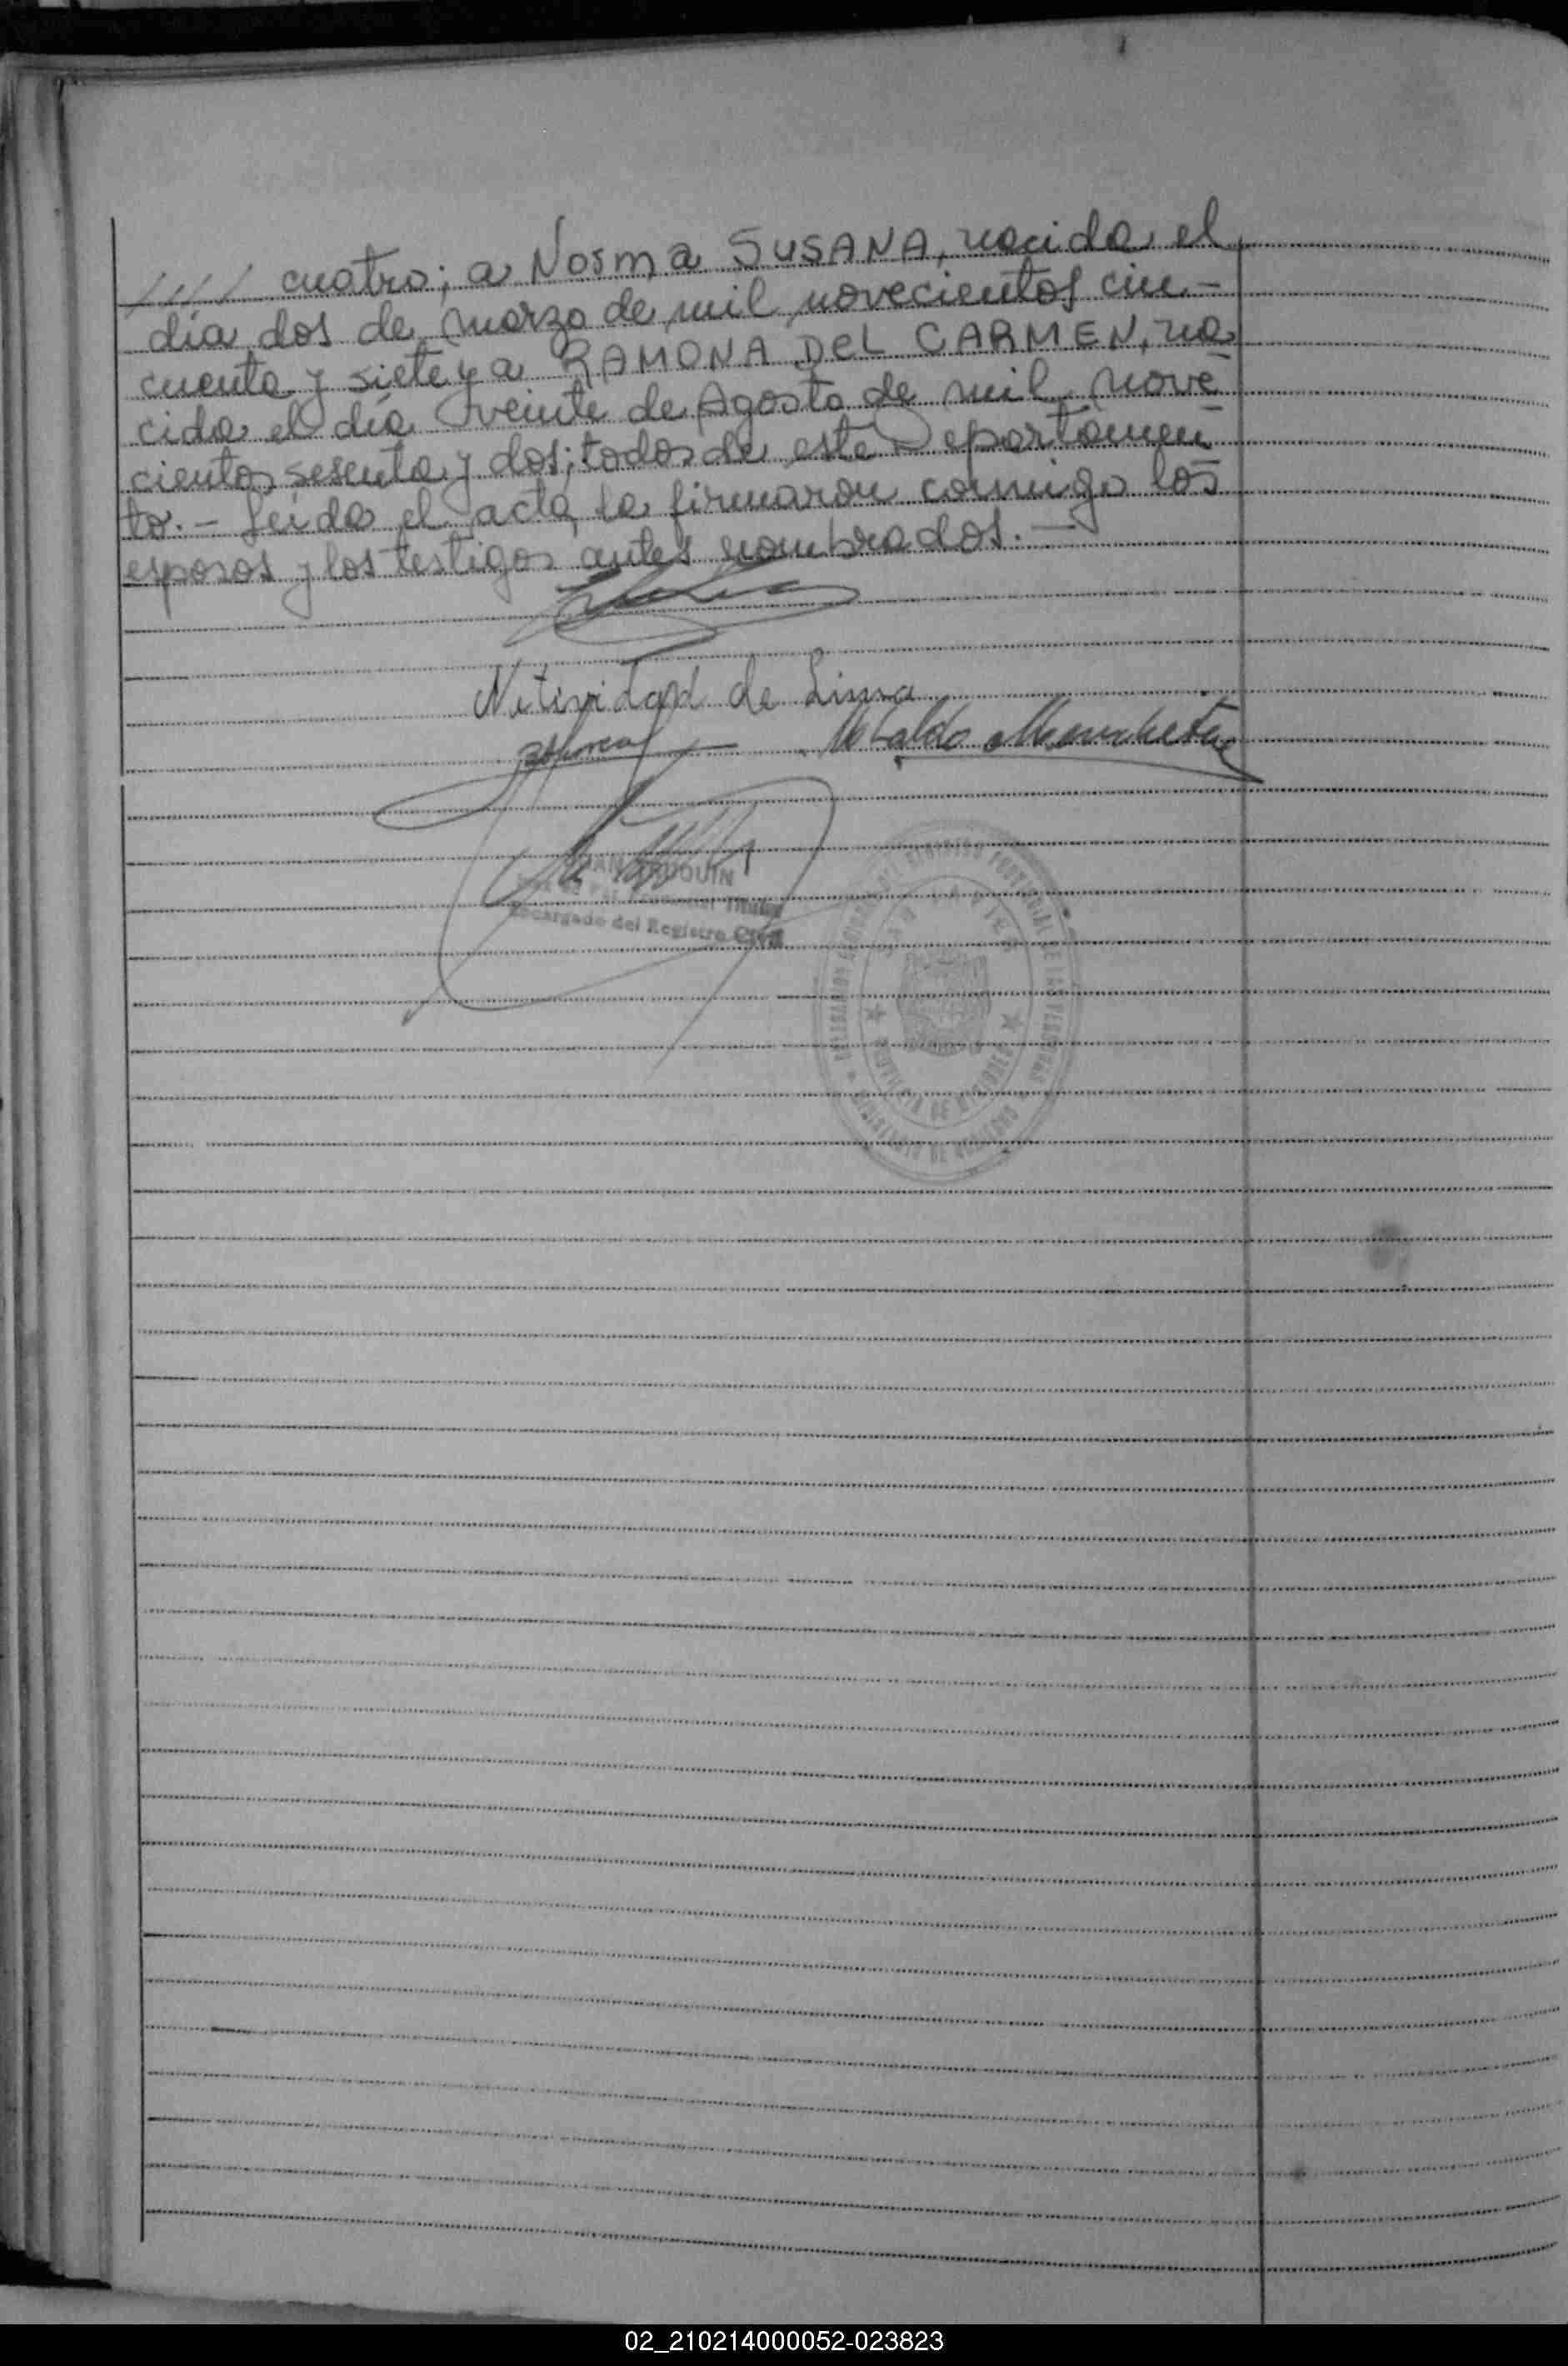 //// cuatro; a Norma SUSANA, nacida el
día dos de marzo de mil novecientos cin-
cuenta y siete y a RAMONA DEL CARMEN, na
cida el día veinte de Agosto de mil nove
cientos sesenta y dos; todos de este Departamen
to.- Leída el acta, la firmaron conmigo los
esposos y los testigos antes nombrados.-
Natividad de Lima
Encargado del Registro Civil
02_210214000052-023823